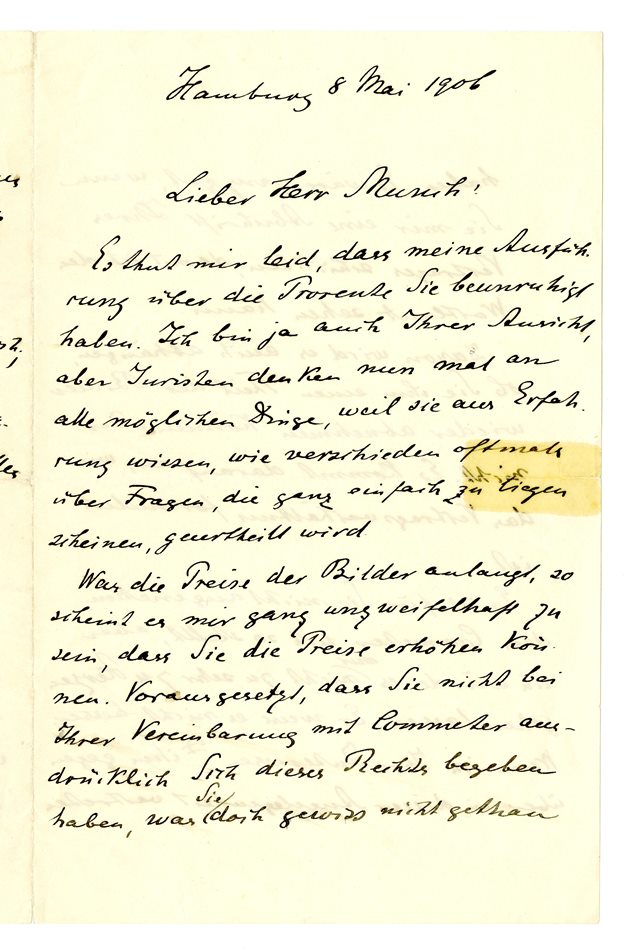 Hamburg 8 Mai 1906
Lieber Herr Munch!
Es thut mir leid, dass meine Ausfüh-
rung über die Prozente Sie beunruhigt
haben. Ich bin ja auch Ihrer Ansicht,
aber Juristen denken nun mal an
alle möglichen Dinge, weil sie aus Erfah-
rung wissen, wie verschieden oftmals
über Fragen, die ganz einfach zu liegen
scheinen, geurtheilt wird.
Was die Preise der Bilder anlangt, so
scheint es mir ganz unzweifelhaft zu
sein, dass Sie die Preise erhöhen kön-
nen. Vorausgesetzt, dass Sie nicht bei
Ihrer Vereinbarung mit Commeter aus-
drücklich Sich dieses Rechts begeben
haben, was Sie doch gewiss nicht gethan